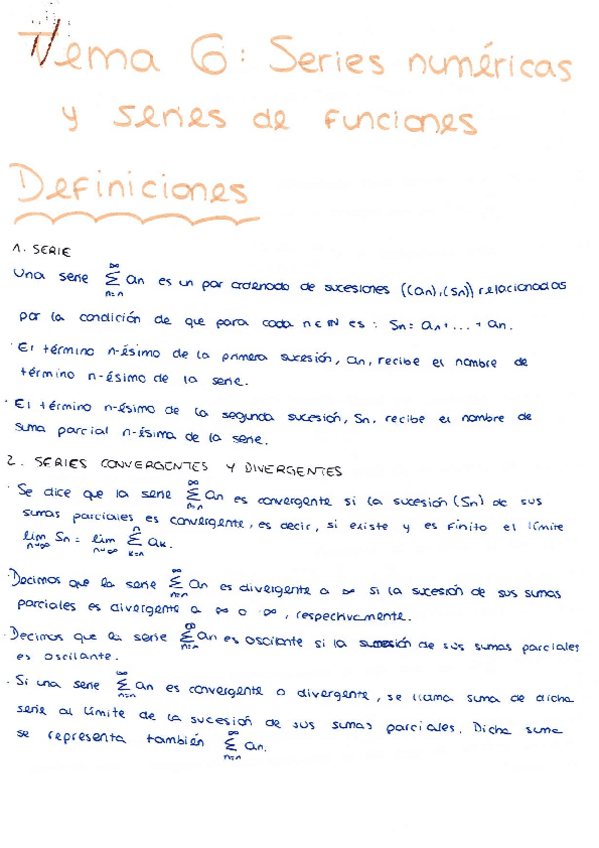 Tema 6: Series numéricas
y series de funciones
Definiciones
1. SERIE
Una serie ∞ Σ n=n an es un par ordenado de sucesiones ((an),(Sn)) relacionadas
por la condición de que para cada n ∈ IN es : Sn = an+...+ an.
· El término n-ésimo de la primera sucesión, an, recibe el nombre de
término n-ésimo de la serie.
· El término n-ésimo de la segunda sucesión, Sn, recibe el nombre de
suma parcial n-ésima de la serie.
2. SERIES CONVERGENTES Y DIVERGENTES
· Se dice que la serie ∞ Σ n=n an es convergente si la sucesión (Sn) de sus
sumas parciales es convergente, es decir, si existe y es finito el límite
lim n→∞ Sn = lim n→∞ n Σ k=n ak.
· Decimos que la serie ∞ Σ n=n an es divergente a ∞ si la sucesión de sus sumas
parciales es divergente a ∞ o ∞, respectivamente.
· Decimos que la serie ∞ Σ n=n an es oscilante si la sucesión de sus sumas parciales
es oscilante.
· Si una serie ∞ Σ n=n an es convergente o divergente, se llama suma de dicha
serie al límite de la sucesión de sus sumas parciales. Dicha suma
se representa también ∞ Σ n=n an.